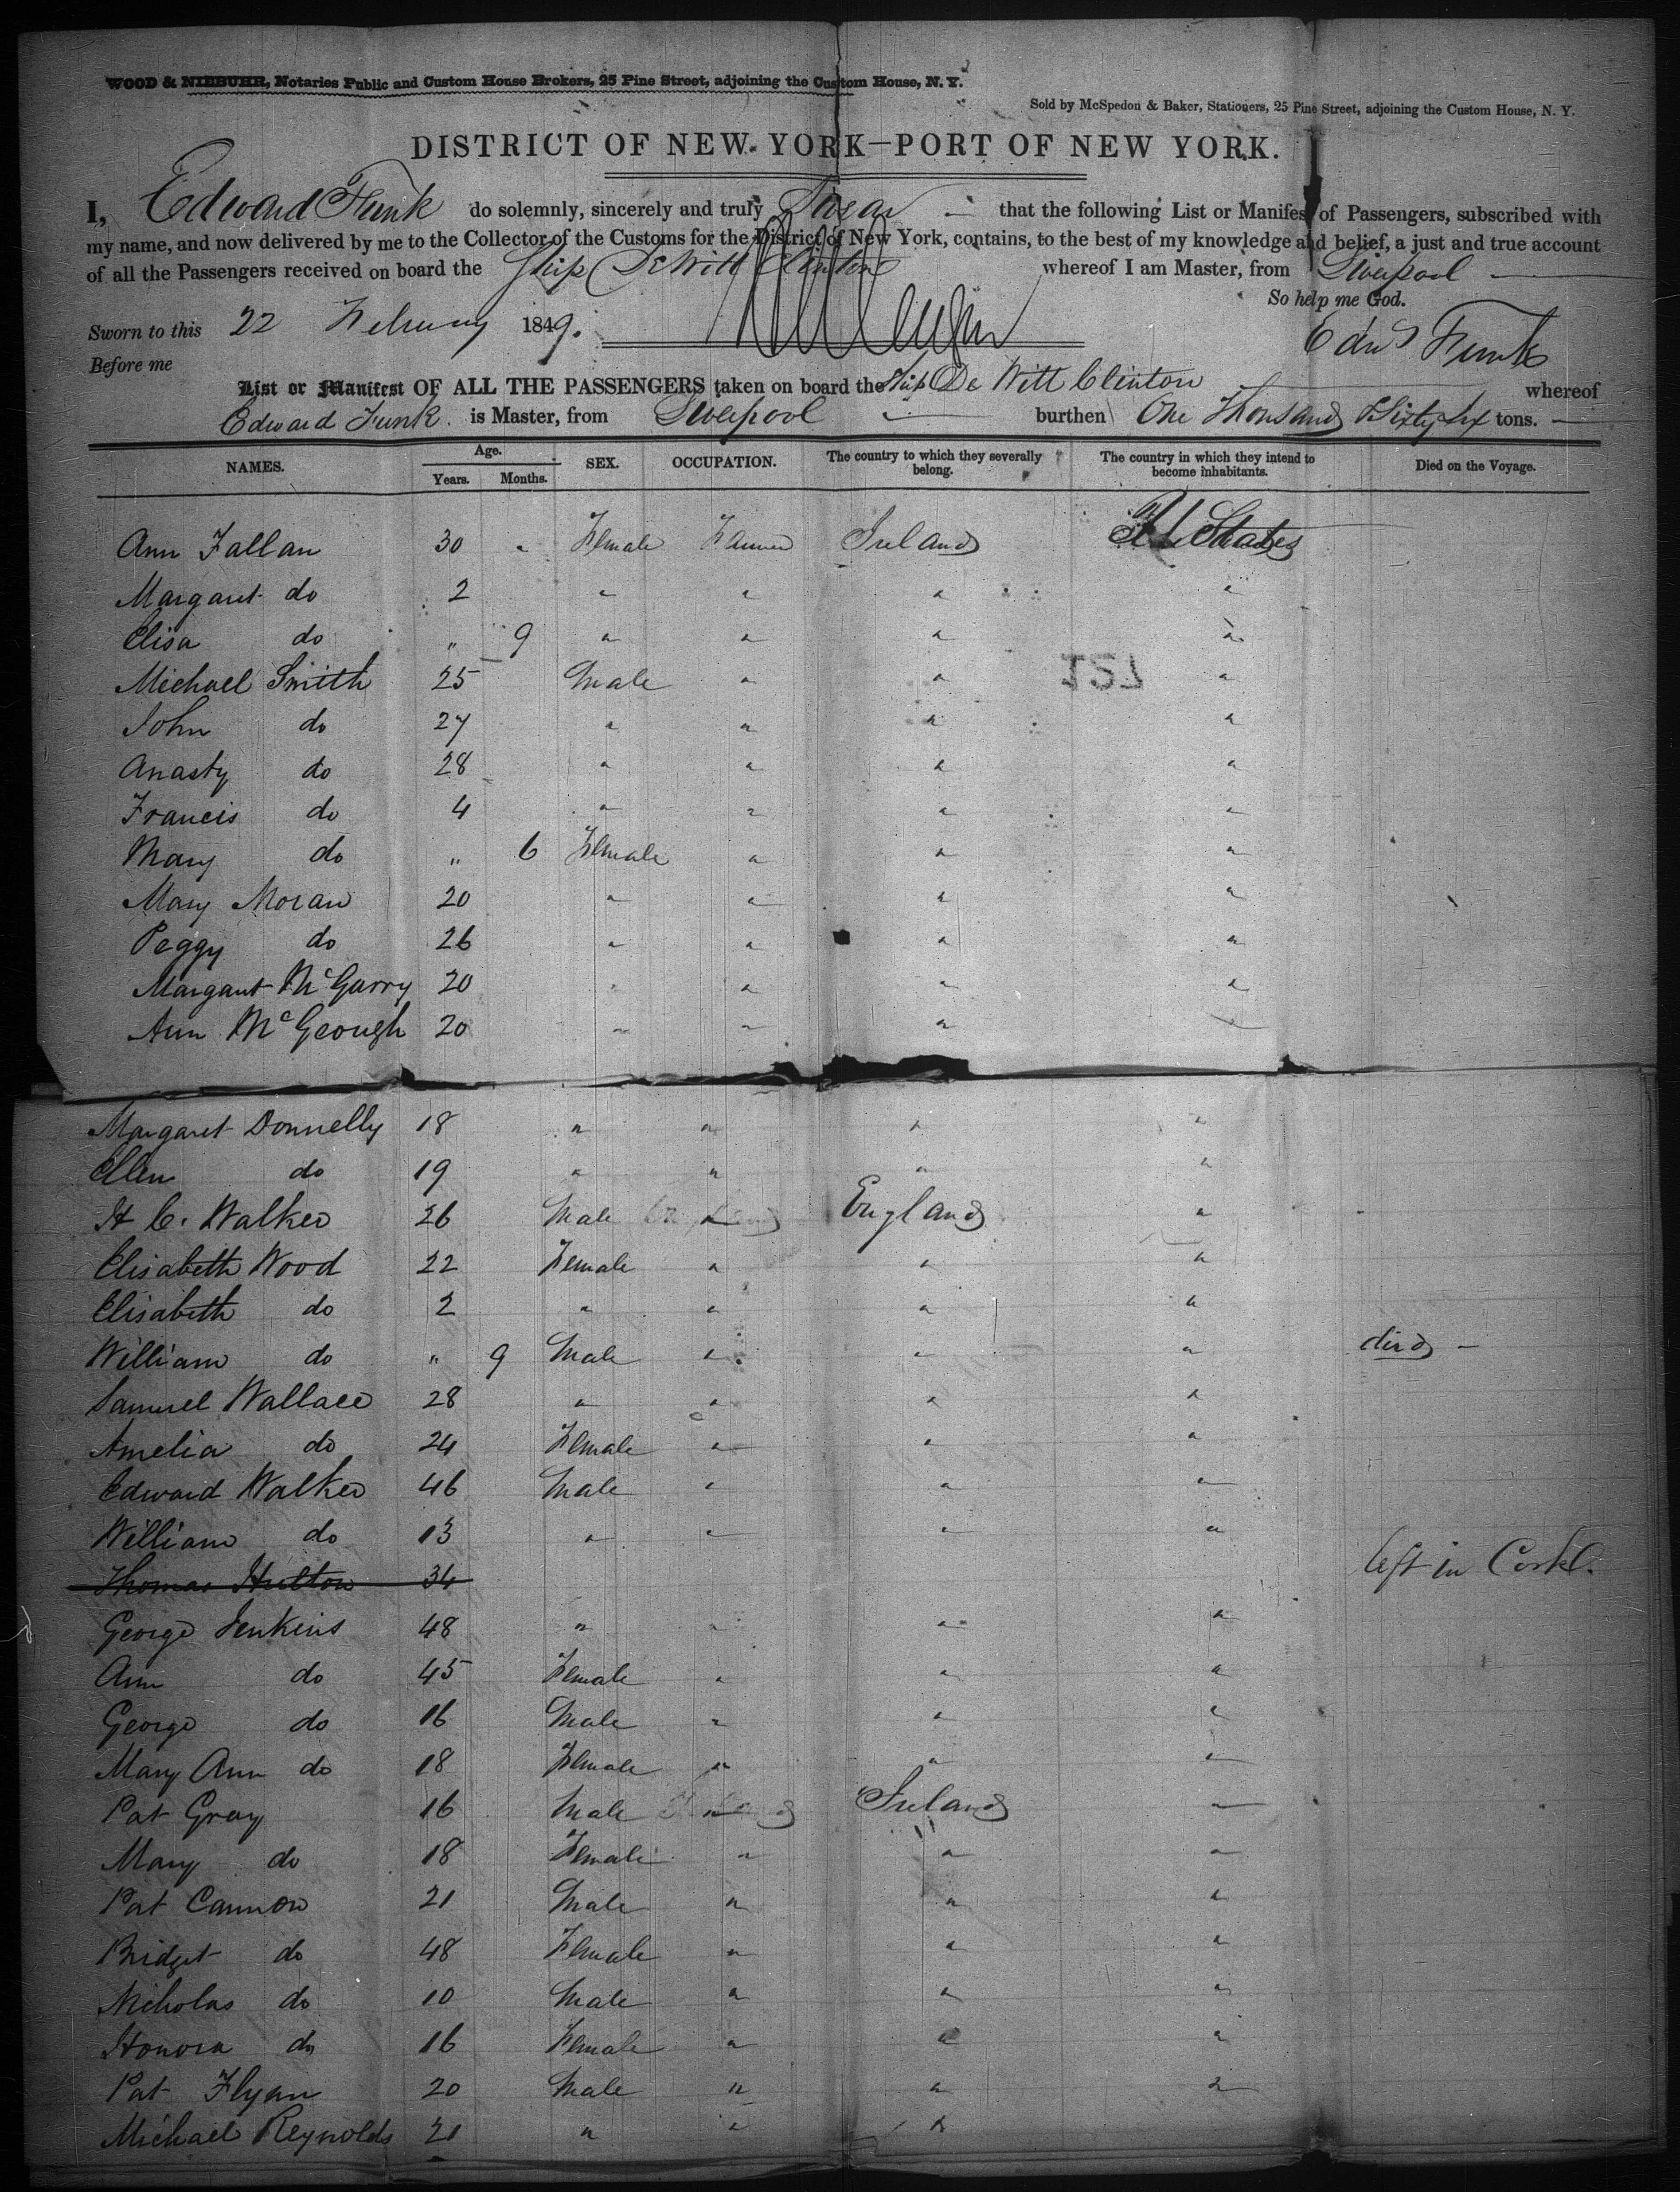 WOOD & NIEBUHR, Notaries Public and Custom House Brokers, 25 Pine Street, adjoining the Custom House, N. Y.
Sold by McSpedon & Baker, Stationers, 25 Pine Street, adjoining the Custom House, N. Y.
DISTRICT OF NEW YORK—PORT OF NEW YORK.
I, Edward Funk do solemnly, sincerely and truly Swear that the following List or Manifest of Passengers, subscribed with
my name, and now delivered by me to the Collector of the Customs for the District of New York, contains, to the best of my knowledge and belief, a just and true account
of all the Passengers received on board the Ship DeWitt Clinton whereof I am Master, from Liverpool
So help me God.
Sworn to this 22 February 1849. Edwd Funk
Before me
List or Manifest OF ALL THE PASSENGERS taken on board the Ship De Witt Clinton whereof
Edward Funk is Master, from Liverpool burthen One Thousand & Sixty Six tons.
NAMES. Age. Years. Months. SEX. OCCUPATION. The country to which they severally belong. The country in which they intend to become inhabitants. Died on the Voyage.
Ann Fallan 30 " Female Farmer Ireland U States
Margaret do 2 " " " "
Elisa do " 9 " " " "
Michael Smith 25 Male " " "
John do 27 " " " "
Anasty do 28 " " " "
Francis do 4 " " " "
Mary do " 6 Female " " "
Mary Moran 20 " " " "
Peggy do 26 " " " "
Margaret McGarry 20 " " " "
Ann McGeough 20 " " " "
Margaret Donnelly 18 " " " "
Ellen do 19 " " " "
H C. Walker 26 Male " England "
Elisabeth Wood 22 Female " " "
Elisabeth do 2 " " " "
William do " 9 Male " " " died
Samuel Wallace 28 " " " "
Amelia do 24 Female " " "
Edward Walker 46 Male " " "
William do 13 " " " "
Thomas Hutton 34 left in Cork.
George Jenkins 48 " " " "
Ann do 45 Female " " "
George do 16 Male " " "
Mary Ann do 18 Female " " "
Pat Gray 16 Male " Ireland "
Mary do 18 Female " " "
Pat Cannon 21 Male " " "
Bridget do 48 Female " " "
Nicholas do 10 Male " " "
Honora do 16 Female " " "
Pat Flynn 20 Male " " "
Michael Reynolds 21 " " "